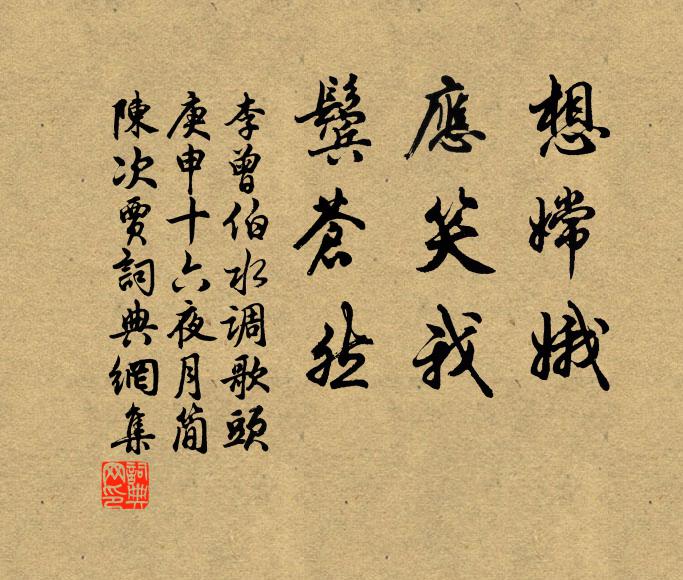 想嫦娥
應笑我
鬢蒼然
李曾伯水调歌頭
庚申十六夜月简
陳次賈詞典網集
詞典
网印